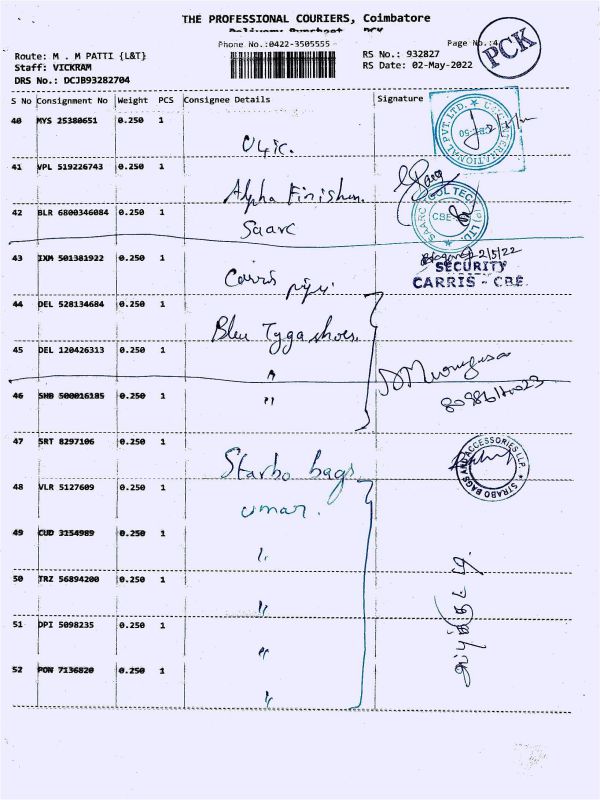 THE PROFESSIONAL COURIERS, Coimbatore
Delivery Runsheet - PCK
Phone No.:0422-3505555 -
Page No.:4
PCK
Route: M . M PATTI {L&T}
RS No.: 932827
Staff: VICKRAM
RS Date: 02-May-2022
DRS No.: DCJB93282704
S No Consignment No Weight PCS Consignee Details Signature
40 MYS 25380651 0.250 1
41 VPL 519226743 0.250 1
Alpha Finisher.
42 BLR 6800346084 0.250 1
Saarc
43 IXM 501381922 0.250 1
Carris
2/5/22
SECURITY
CARRIS - CBE.
44 DEL 528134684 0.250 1
Bleu Tyga shoes.
45 DEL 120426313 0.250 1
"
46 SHB 500016185 0.250 1
"
47 SRT 8297106 0.250 1
Starbo bags
STRABO BAGS AND ACCESSORIES LLP.
48 VLR 5127609 0.250 1
umar.
49 CUD 3154989 0.250 1
"
50 TRZ 56894200 0.250 1
"
51 DPI 5098235 0.250 1
"
52 PON 7136820 0.250 1
"